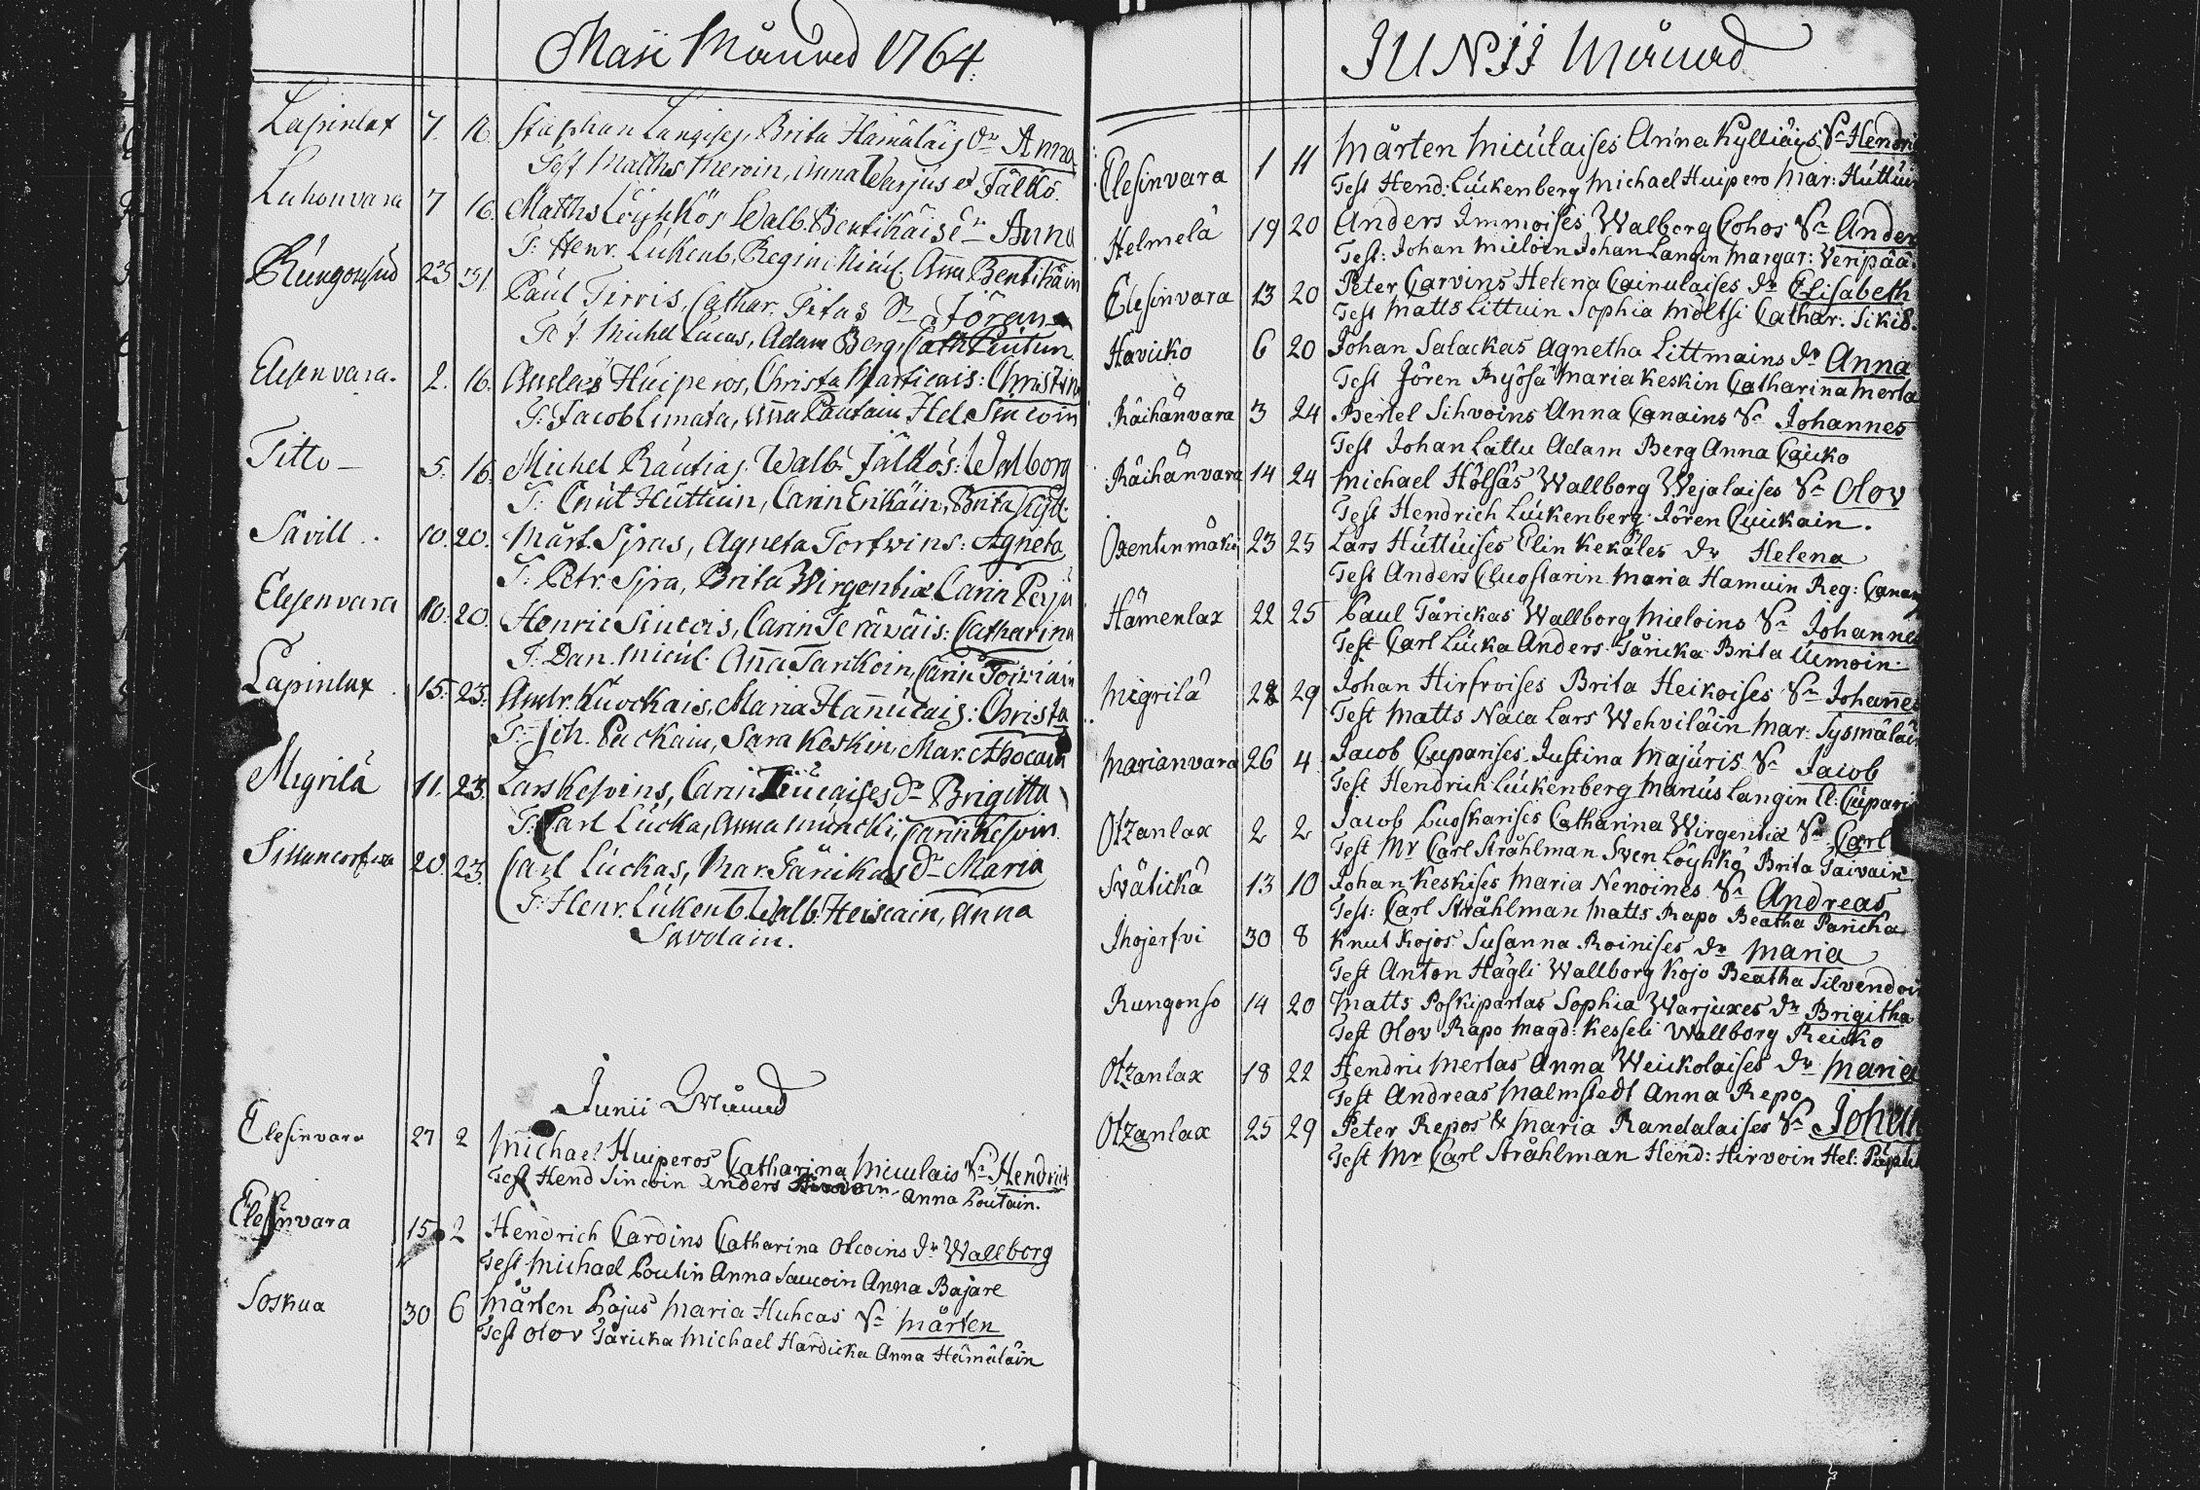 Maji Månad 1764.
Lapinlax 7. 16. Staphan Langises, Brita Hämäläis dr Anna
Test Matths Mervin, Anna Warjus et Jälkö.
Luhonvara 7 16. Matths Löyhkös Walb. Bentikäis dr Anna
T: Henr. Lükenb, Regin: Micul. Anna Bentikäin
Rungonsud 25 31 Paul Tirris, Cathar. Titas Sn Jören
Test Michel Lucas, Adam Berg, Cath Pentun
Elesenvara. 2. 16. Anders Huiperos, Christa Marticais: Christina
T: Jacob Limata, Anna Pautain Hel. Sincoin
Titto 5. 16. Michel Rautias Walb. Jälkös: Walborg
T: Cnut Huttuin, Carin Erikäin, Brita Kyll.
Savill 10. 20. Mårt. Sjras, Agneta Torfwins: Agneta
T: Petr. Sjra, Brita Wirgentia Carin Perju
Elesenvara 10. 20. Henric Sincois, Carin Teräväis: Catharina
T: Dan. Micul. Anna Tarikoin, Carin Toiviain
Lapinlax 15. 23. Andr. Kuockais, Maria Hannucais: Christa
T: Joh. Puckain, Sara Keskin, Mar. Ahocain
Migrilä 11. 23. Lars Kesvins, Carin dr Brigitta
T: Carl Lucka, Anna Muncki, Carin Kesvin
20. 23. Carl Luckas, Mar. Tärikas dr Maria
T: Henr. Lükenb. Walb. Heiscain, Anna
Savolain.
Junii Månad
Elesinvara 27 2 Michael Huiperos Catharina Miculais Sn Hendrich
Test Hend Sincoin Anders Anna Poutain.
Elesinvara 15 2 Hendrich Caroins Catharina Olcoins dr Wallborg
Test Michael Poutin Anna Saucoin Anna Bajare
Soskua 30 6 Mårten Pajus Maria Huhcas Sn Mårten
Test Olov Täricka Michael Hardicka Anna Hämäläin
JUNII Månad
Elesinvara 1 11 Mårten Miculaises Anna Kylliäis Sn Hendri
Test Hend: Lückenberg Michael Huipero Mar: Huttui
Helmelä 19 20 Anders Immoises Walborg Cohos Sn Ander
Test: Johan Mieloin Johan Langin Margar: Veripää
Elesinvara 13 20 Peter Carvins Helena Cainulaises dr Elisabeth
Test Matts Littuin Sophia Möltsi Cathar. Sikiö.
Havicko 6 20 Johan Salackas Agnetha Littmains dr Anna
Test Jören Ryösä Maria Keskin Catharina Merta
Räihänvara 3 24 Bertel Sihvoins Anna Canains Sn Johannes
Test Johan Lattu Adam Berg Anna Caicko
Räihänvara 14 24 Michael Hölsäs Wallborg Wejalaises Sn Olov
Test Hendrich Lückenberg Jören Quickain.
Oxentinmäki 23 25 Lars Huttuises Elin Kekäles dr Helena
Test Anders Cluostarin Maria Hamuin Reg: Canan
Hämenlax 22 25 Paul Tärickas Wallborg Mieloins Sn Johannes
Test Carl Lucka Anders Täricka Brita Uimoin
Migrilä 28 29 Johan Hirfroises Brita Heikoises Sn Johannes
Test Matts Naca Lars Wehviläin Mar: Tysmäläi
Marianvara 26 4 Jacob Cuparises Justina Majuris Sn Jacob
Test Hendrich Lückenberg Marius Langin El: Cupari
Otzanlax 2 2 Jacob Luoskarises Catharina Wirgentia Sn Carl
Test Mr Carl Stråhlman Sven Löyhkö Brita Taivain
Svätickä 13 10 Johan Keskises Maria Nenoines Sn Andreas
Test: Carl Stråhlman Matts Rapo Beatha Paricka
Ihojerfvi 30 8 Knut Kojos Susanna Roinises dr Maria
Test Anton Hägli Wallborg Kojo Beatha Silvendoi
Rungonso 14 20 Matts Poskipartas Sophia Warjuxes dr Brigitha
Test Olov Rapo Magd: Kesseli Wallborg Reicko
Otzanlax 18 22 Hendric Mertas Anna Weickolaises dr Maria
Test Andreas Malmstedt Anna Repo
Otzanlax 25 29 Peter Repos & Maria Randalaises Sn Johan
Test Mr Carl Stråhlman Hend: Hirvoin Hel: